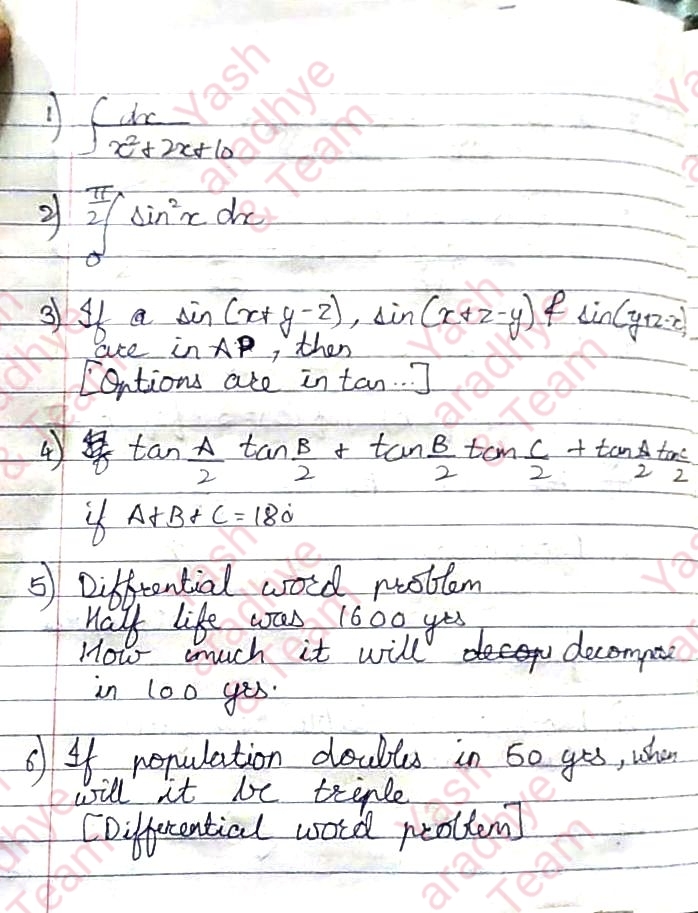 1) ∫ dx / x² + 2x + 10
2) π/2 ∫ 0 sin²x dx
3) If a sin (x+y-z), sin (x+z-y) & sin(y+z-x)
are in AP, then
[Options are in tan...]
4) If tan A/2 tan B/2 + tan B/2 tan C/2 + tan A/2 tan C/2
if A+B+C = 180
5) Diffrential word problem
Half life was 1600 yrs
How much it will decop decompose
in 100 yrs.
6) If population doubles in 50 yrs, when
will it be triple
[Differential word problem]
Yash
aradhye
& Team